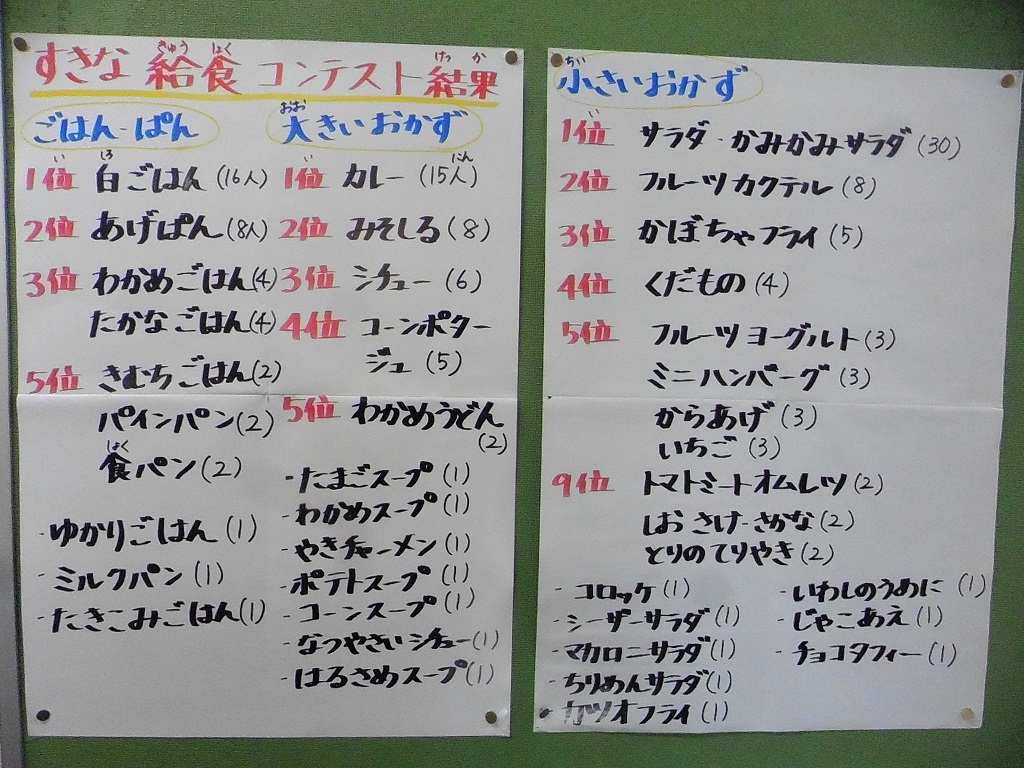 すきな 給食 コンテスト 結果
きゅう しょく けっ か
ごはん・ぱん
1位 白ごはん (16人)
2位 あげぱん (8人)
3位 わかめごはん (4)
たかなごはん (4)
5位 きむちごはん (2)
パインパン (2)
食パン (2)
・ゆかりごはん (1)
・ミルクパン (1)
・たきこみごはん (1)
大きいおかず
1位 カレー (15人)
2位 みそしる (8)
3位 シチュー (6)
4位 コーンポター
ジュ (5)
5位 わかめうどん
(2)
・たまごスープ (1)
・わかめスープ (1)
・やきチャーメン (1)
・ポテトスープ (1)
・コーンスープ (1)
・なつやさいシチュー (1)
・はるさめスープ (1)
小さいおかず
1位 サラダ・かみかみサラダ (30)
2位 フルーツカクテル (8)
3位 かぼちゃフライ (5)
4位 くだもの (4)
5位 フルーツヨーグルト (3)
ミニハンバーグ (3)
からあげ (3)
いちご (3)
9位 トマトミートオムレツ (2)
しおさけ・さかな (2)
とりのてりやき (2)
・コロッケ (1)
・シーザーサラダ (1)
・マカロニサラダ (1)
・ちりめんサラダ (1)
・カツオフライ (1)
・いわしのうめに (1)
・じゃこあえ (1)
・チョコタフィー (1)